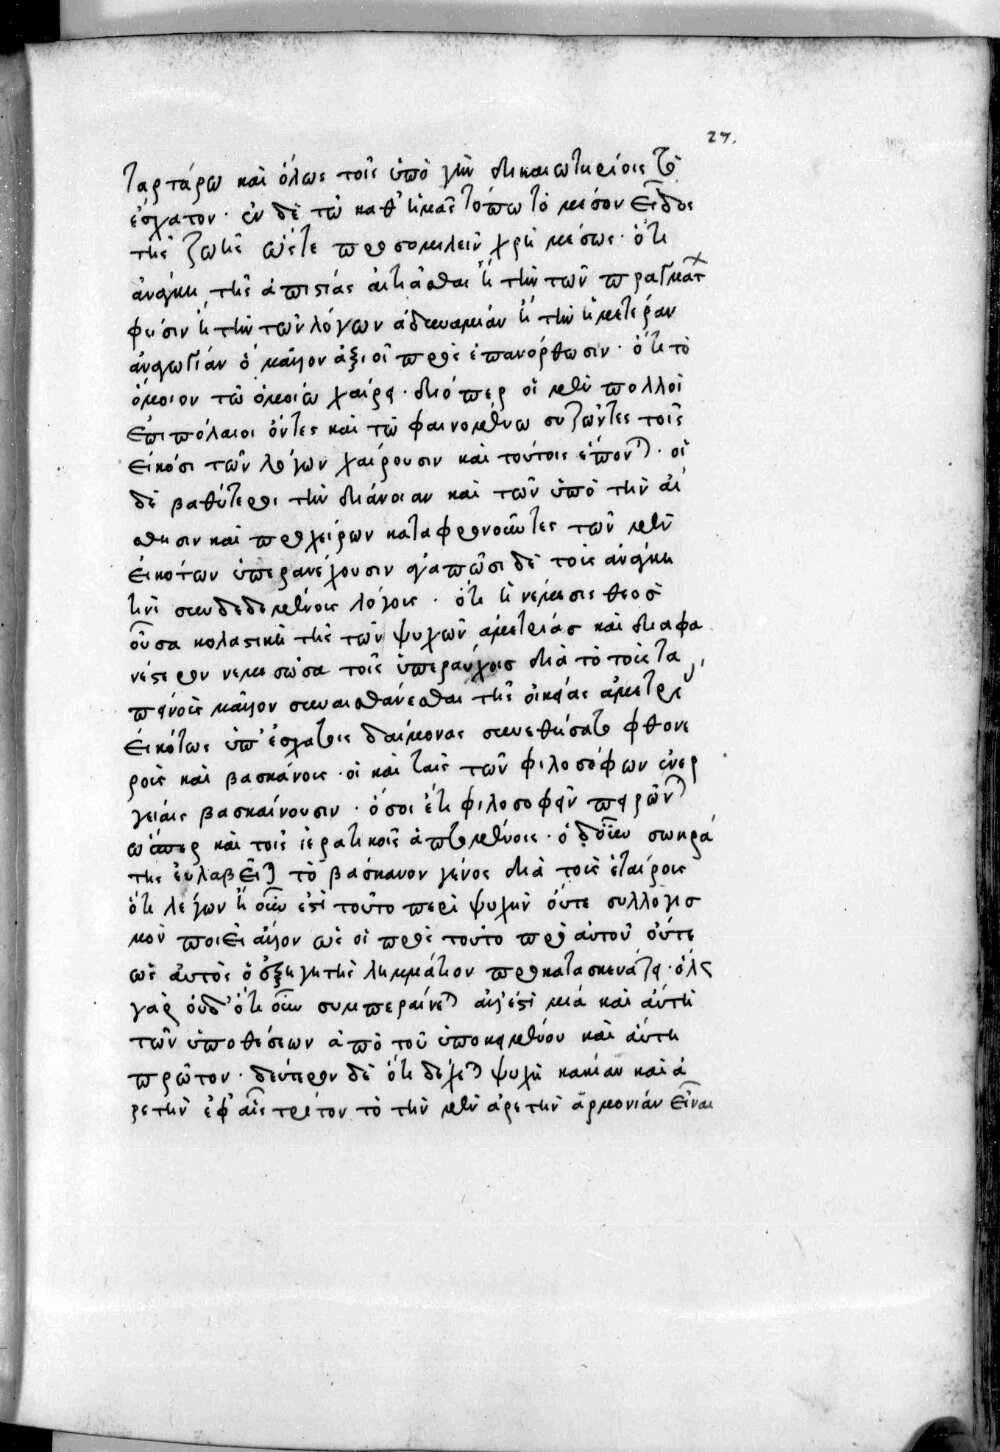 27.
ταρτάρω καὶ ὅλως τοῖς ὑπὸ γῆν δικαιωτηρίοις τὸ
ἔσχατον· ἐν δὲ τῶ καθ' ἡμᾶς τόπω τὸ μέσον εἶδος
τῆς ζωῆς ὥστε προσομιλεῖν χρὴ μέσως· ὅτι
ἀνάγκη τῆς ἀπιστίας αἰτιᾶσθαι ἢ τὴν τῶν πραγματ
φύσιν ἢ τὴν τῶν λόγων ἀδυναμίαν ἢ τὴν ἡμετέραν
ἀναγωγίαν ὃ μᾶλλον ἀξιοῖ πρὸς ἐπανόρθωσιν· ὅτι τὸ
ὅμοιον τῶ ὁμοίω χαίρει· διόπερ οἱ μὲν πολλοὶ
ἐπιπόλαιοι ὄντες καὶ τῶ φαινομένω συζῶντες τοῖς
εἰκόσι τῶν λόγων χαίρουσιν καὶ τούτοις ἕπον· οἱ
δὲ βαθύτεροι τὴν διάνοιαν καὶ τῶν ὑπὸ τὴν αἴ
σθησιν καὶ προχείρων καταφρονοῦντες τῶν μὲν
εἰκότων ὑπερανέχουσιν ἀγαπῶσι δὲ τοῖς ἀνάγκη
τινὶ συνδεδεμένοις λόγοις· ὅτι ἡ νέμεσις θεὸς
οὖσα κολαστικὴ τῆς τῶν ψυχῶν ἀμετρίας καὶ διαφα
νέστερον νεμεσῶσα τοῖς ὑπεραύχοις διὰ τὸ τοὺς τα
πεινοὺς μᾶλλον συναισθάνεσθαι τῆς οἰκείας ἀμετρι
εἰκότως ὑπ' ἐσχάτοις δαίμονας συνεθήσατο φθονε
ροὺς καὶ βασκάνους· οἳ καὶ ταῖς τῶν φιλοσόφων ἐνερ
γείαις βασκαίνουσιν· ὅσοι ἔτι φιλοσοφεῖν πειρῶν
ὥσπερ καὶ τοῖς ἱερατικοῖς ἁπτομένοις· ὁ δ' οὖν σωκρά
της εὐλαβεῖ τὸ βάσκανον γένος διὰ τοὺς ἑταίρους
ὅτι λέγων ἢ οὖν ἐστὶ τοῦτο περὶ ψυχὴν οὔτε συλλογισ
μὸν ποιεῖ ἄλλον ὡς οἱ πρὸς τοῦτο πρὸ αὐτοῦ οὔτε
ὡς αὐτὸς ὁ ἐξηγητὴς λημμάτιον προκατασκευάζει· ὅλως
γὰρ οὐδ' ὅτι οὖν συμπεραίνε ἀλλ' ἔστι μία καὶ αὕτη
τῶν ὑποθέσεων ἀπὸ τοῦ ὑποκειμένου καὶ αὕτη
πρῶτον· δεύτερον δὲ ὅτι δέχε ψυχὴ κακίαν καὶ ἀ
ρετὴν ἐφ' αἷς τρίτον τὸ τὴν μὲν ἀρετὴν ἁρμονίαν εἶναι